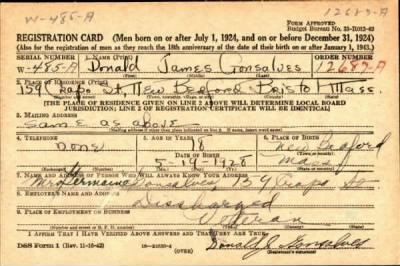 W-485-A
12683-A
FORM APPROVED
Budget Bureau No. 33-R012-42
REGISTRATION CARD (Men born on or after July 1, 1924, and on or before December 31, 1924)
(Also for the registration of men as they reach the 18th anniversary of the date of their birth on or after January 1, 1943.)
SERIAL NUMBER 1. NAME (Print) ORDER NUMBER
W-485-A Donald James Gonsalves 12683-A
2. PLACE OF RESIDENCE (Print)
159 Crapo St, New Bedford Bristol Mass.
[THE PLACE OF RESIDENCE GIVEN ON LINE 2 ABOVE WILL DETERMINE LOCAL BOARD
JURISDICTION; LINE 2 OF REGISTRATION CERTIFICATE WILL BE IDENTICAL]
3. MAILING ADDRESS
Same as above
4. TELEPHONE 5. AGE IN YEARS 6. PLACE OF BIRTH
None 18 New Bedford
DATE OF BIRTH
5-14-1928 Mass
7. NAME AND ADDRESS OF PERSON WHO WILL ALWAYS KNOW YOUR ADDRESS
Mrs Germaine Gonsalves 159 Crapo St
8. EMPLOYER'S NAME AND ADDRESS
Discharged
9. PLACE OF EMPLOYMENT OR BUSINESS
Veteran
I AFFIRM THAT I HAVE VERIFIED ABOVE ANSWERS AND THAT THEY ARE TRUE.
DSS Form 1 (Rev. 11-16-42) (OVER) Donald J. Gonsalves